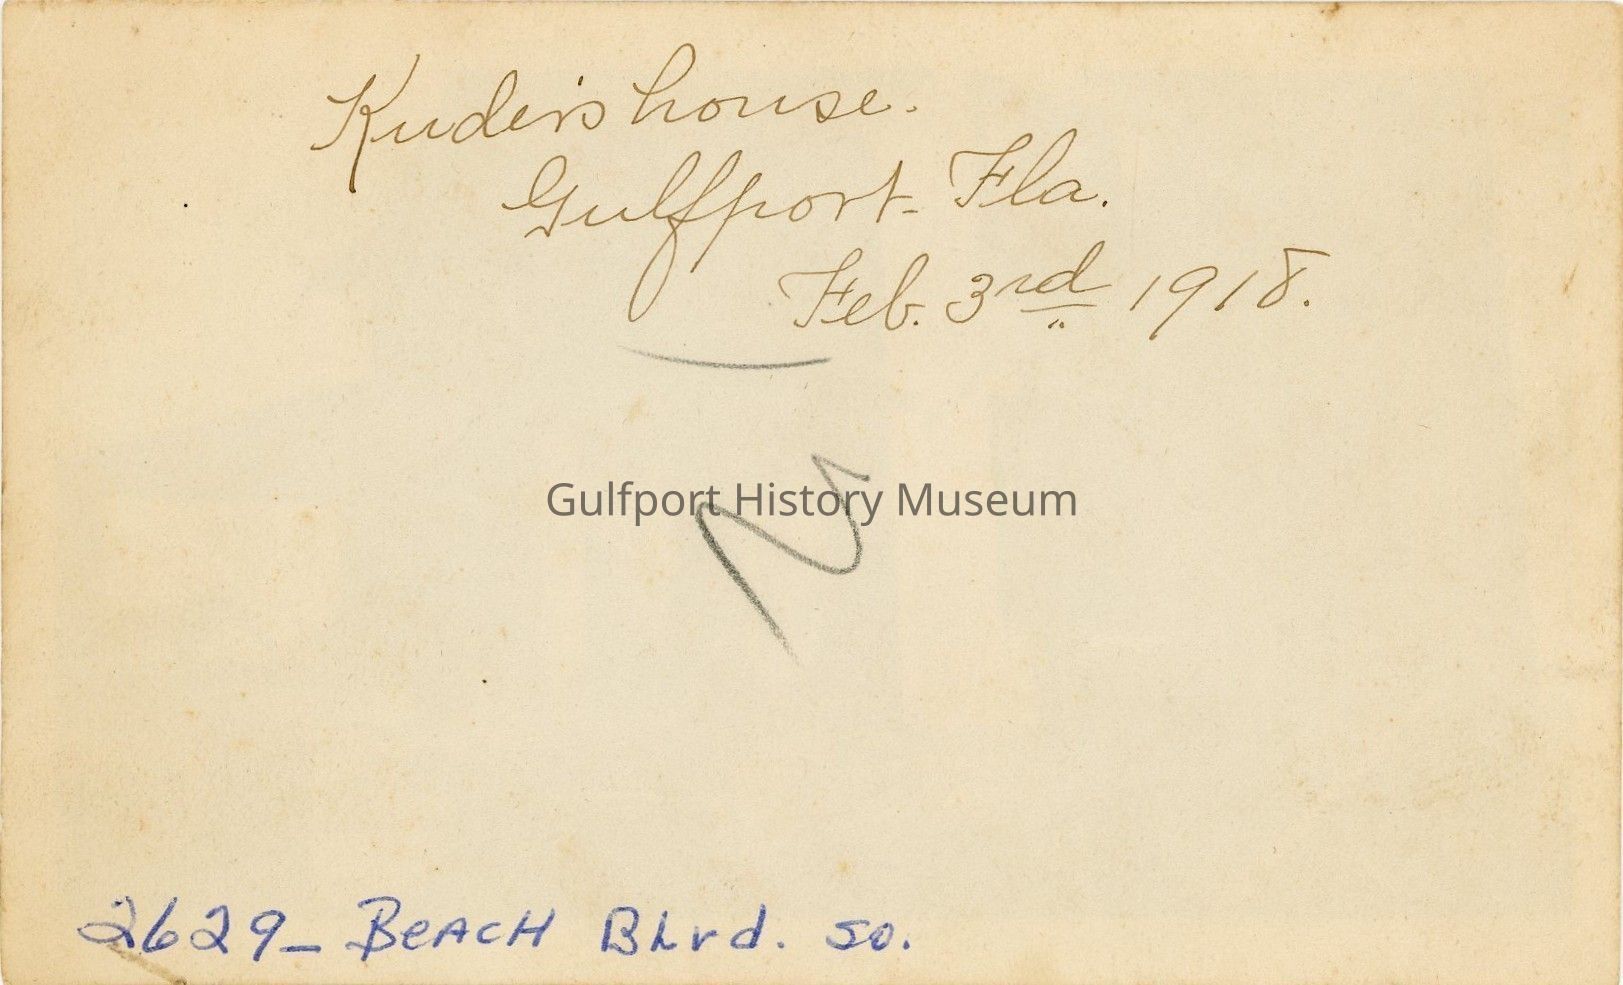 Kuder's house.
Gulfport- Fla.
Feb. 3rd 1918.
Gulfport History Museum
2629- BeACH Blvd. so.